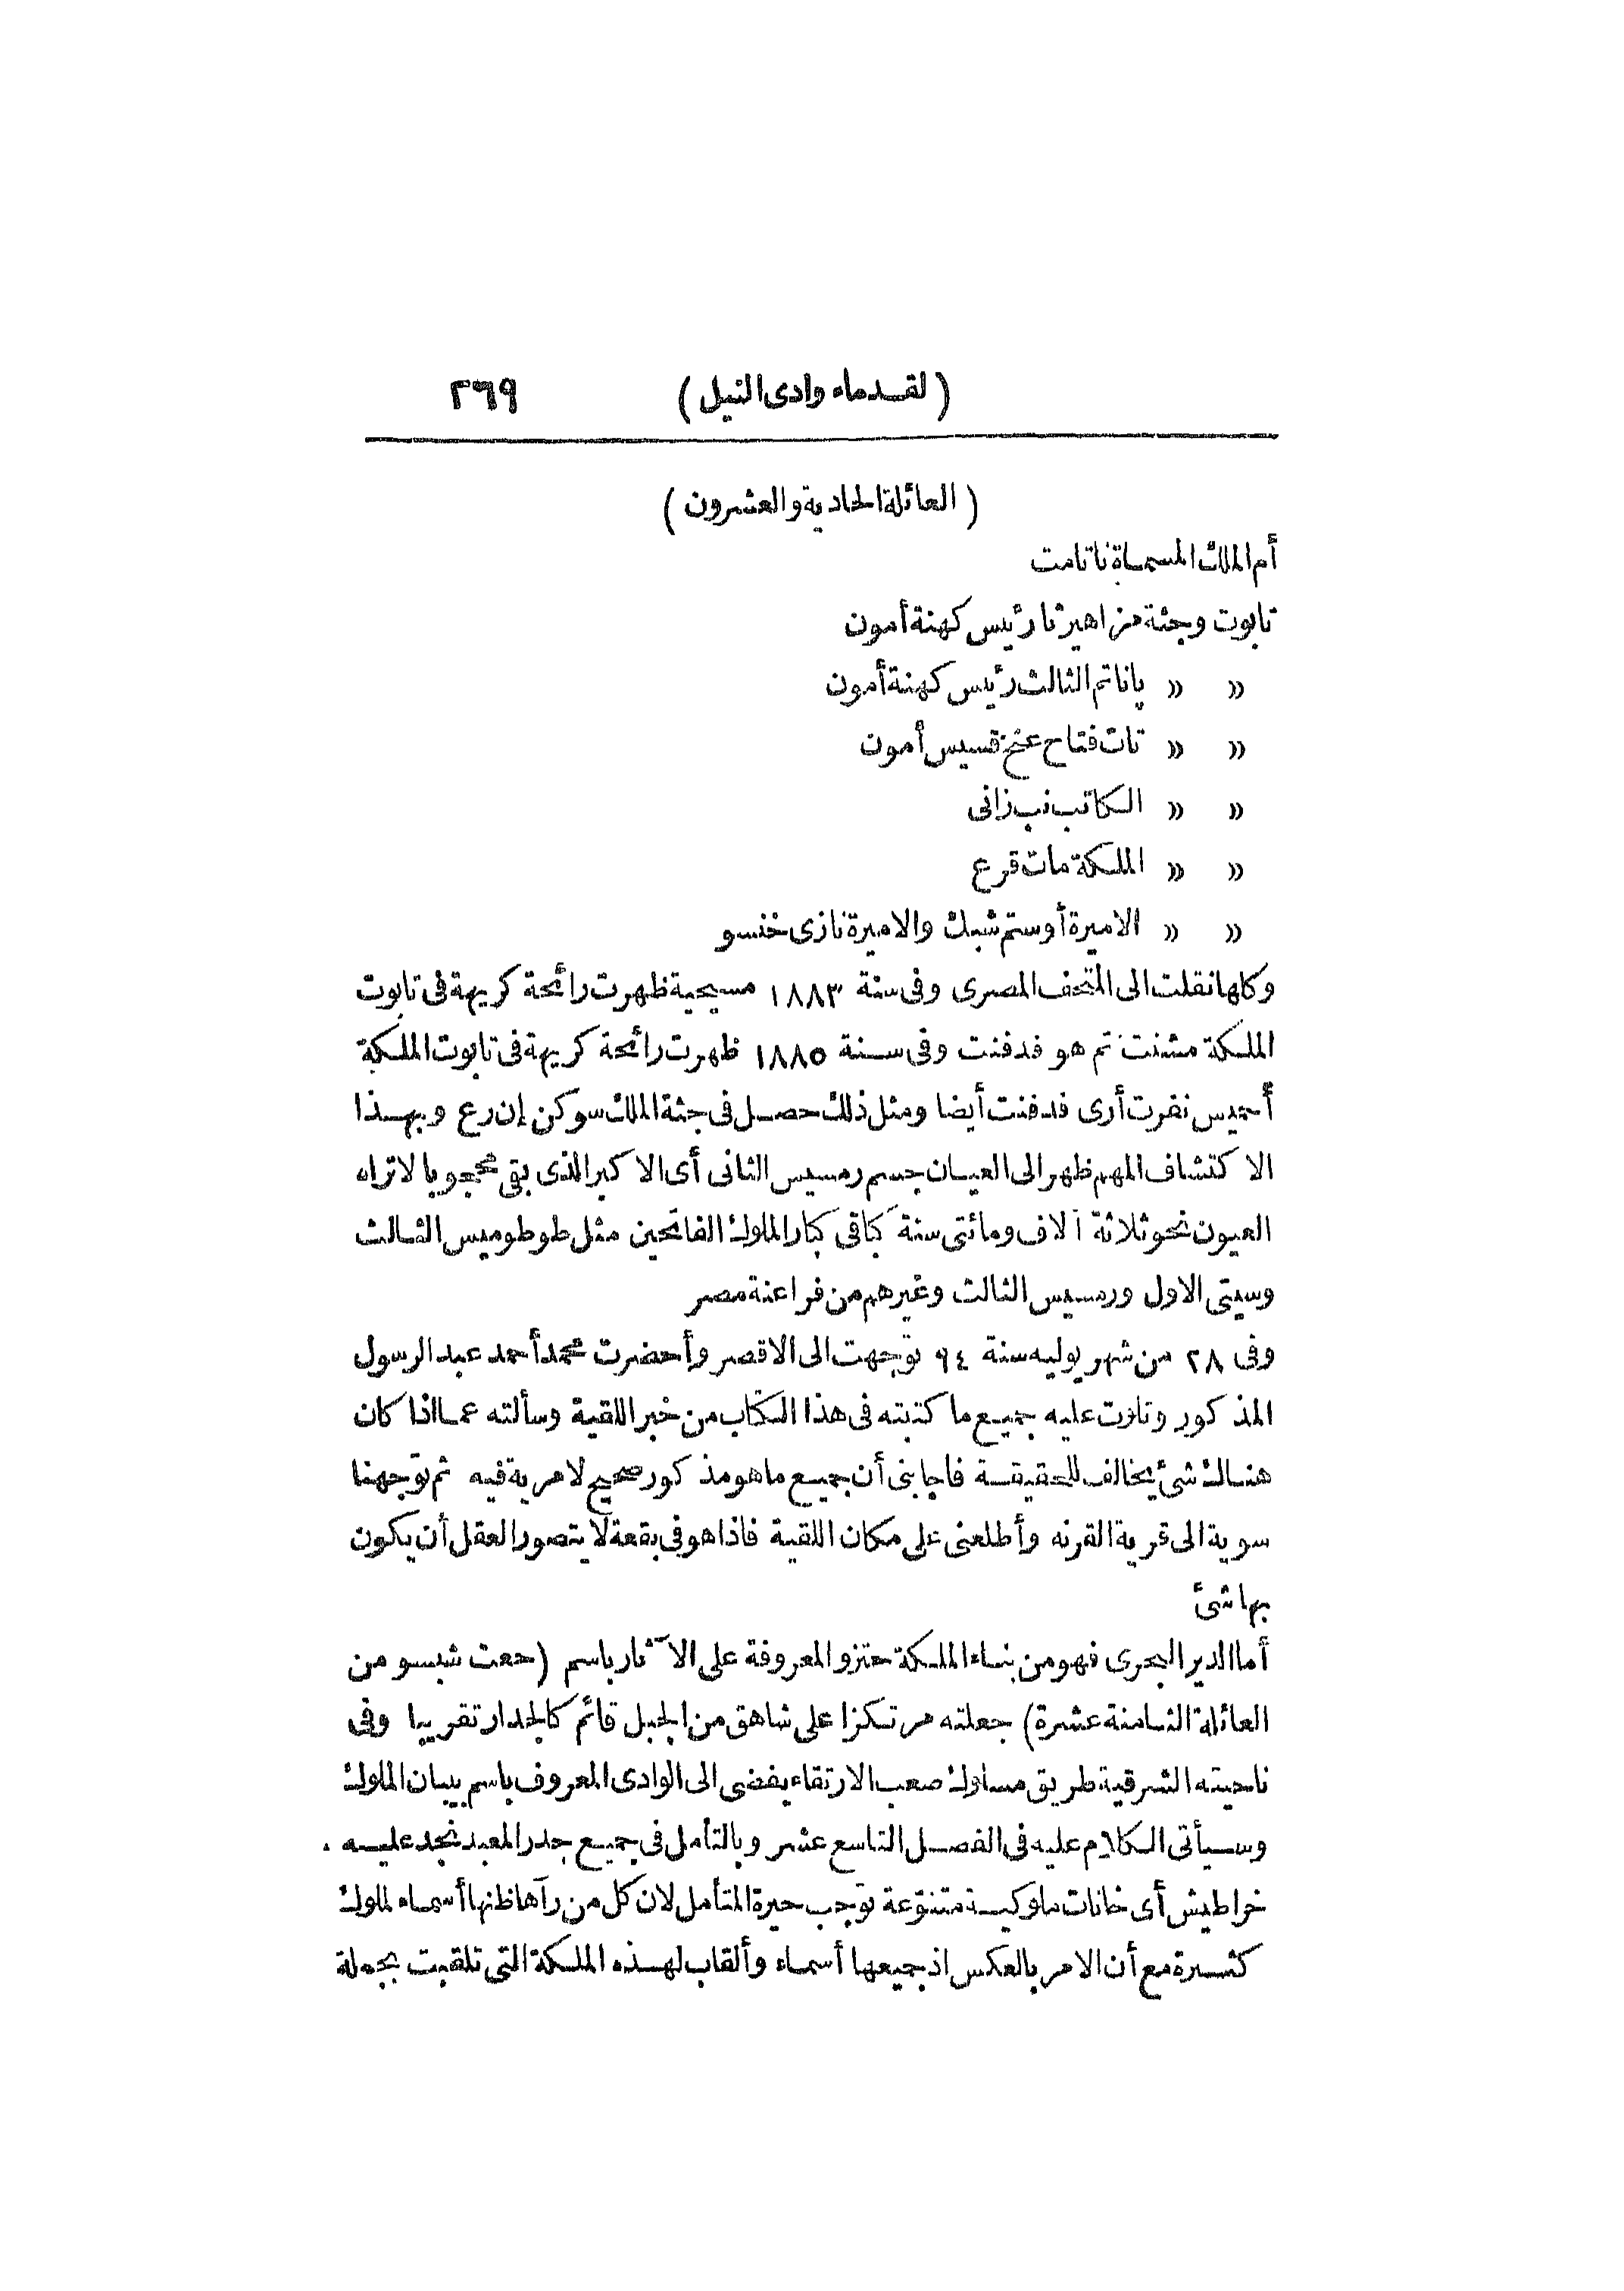 (لقدماء وادى النيل) ٢٦٩
(العائلة الحادية والعشرون)
أم الملك المسماة ناتامت
تابوت وجثة مزاهيرثا رئيس كهنة أمون
» » پاناتم الثالث رئيس كهنة أمون
» » تات فتاح عنخ قسيس أمون
» » الكاتب نب زانى
» » الملكة مات قرع
» » الاميرة أوستم شبك والاميرة نازى خنسو
وكلها نقلت الى المتحف المصرى وفى سنة ١٨٨٣ مسيحية ظهرت رائحة كريهة فى تابوت
الملكة مشنت تم هو فدفنت وفى سنة ١٨٨٥ ظهرت رائحة كريهة فى تابوت الملكة
أحميس نفرت أرى فدفنت أيضا ومثل ذلك حصل فى جثة الملك سوكن إن رع وبهذا
الاكتشاف المهم ظهر الى العيان جسم رمسيس الثانى أى الاكبر الذى بقى محجوبا لا تراه
العيون نحو ثلاثة آلاف ومائتى سنة كباقى كبار الملوك الفاتحين مثل طوطوميس الثالث
وسيتى الاول ورمسيس الثالث وغيرهم من فراعنة مصر
وفى ٢٨ من شهر يوليه سنة ٩٤ توجهت الى الاقصر وأحضرت محمد أحمد عبد الرسول
المذكور وتلوت عليه جميع ما كتبته فى هذا الكتاب من خبر اللقية وسألته عما اذا كان
هناك شئ يخالف للحقيقة فاجابنى أن جميع ما هو مذكور صحيح لا مرية فيه ثم توجهنا
سوية الى قرية القرنه وأطلعنى على مكان اللقية فاذا هو فى بقعة لا يتصور العقل أن يكون
بها شئ
أما الدير البحرى فهو من بناء الملكة حتزو المعروفة على الآثار باسم (حعت شبسو من
العائلة الثامنة عشرة) جعلته مرتكزا على شاهق من الجبل قائم كالجدار تقريبا وفى
ناحيته الشرقية طريق مسلوك صعب الارتقاء يفضى الى الوادى المعروف باسم بيبان الملوك
وسيأتى الكلام عليه فى الفصل التاسع عشر وبالتأمل فى جميع جدر المعبد نجد عليه
خراطيش أى خانات ملوكية متنوّعة توجب حيرة المتأمل لان كل من رآها ظنها أسماء لملوك
كثيرة مع أن الامر بالعكس اذ جميعها أسماء وألقاب لهذه الملكة التى تلقبت بجملة